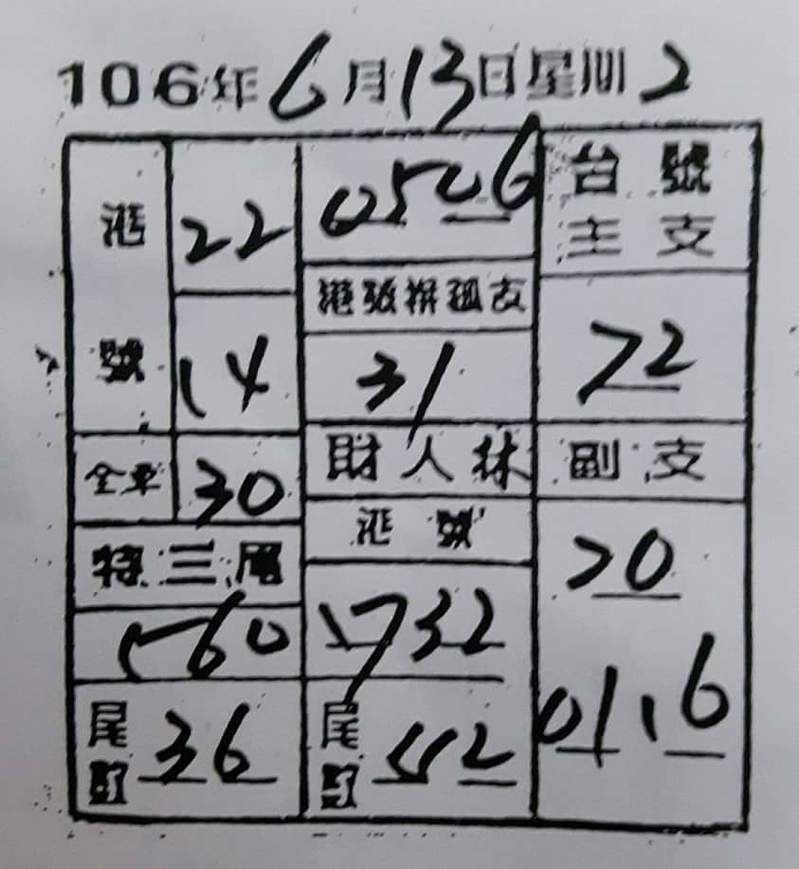 106年6月13日星期2
港號
22
14
全車
30
特三尾
560
尾數
36
0506
港號獨孤支
31
財人林
港號
1732
尾數
52
台號
主支
72
副支
20
01.16